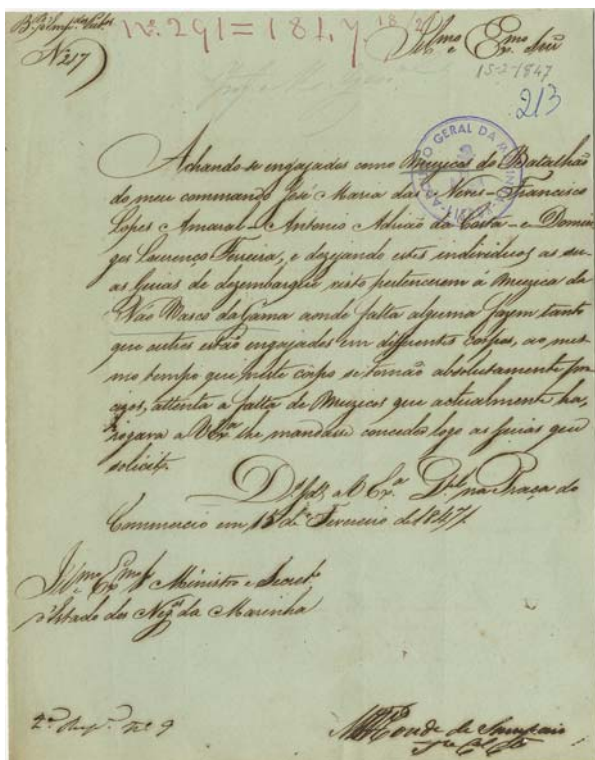 Nº 217
Nº 291 = 181.4
Illmo e Exmo Snr
15-2-1847
213
GERAL DA
Achando-se engajados como Muzicos do Batalhão
do meu commando José Maria das Neves - Francisco
Lopes Amaral - Antonio Adrião da Costa - e Domin
gos Lourenço Pereira, e dezejando estes individuos as su-
as guias de dezembarque visto pertencerem á Muzica da
Náo Vasco da Gama aonde falta alguma fazem tanto
que outros estão engajados em differentes corpos, ao mes-
mo tempo que neste corpo se tornão absolutamente pre
cizos, attenta a falta de Muzicos que actualmente ha,
rogava a V Exª lhe mandasse conceder logo as guias que
solicito.
Ds. gde. a V Exª. Qel. na Praça do
Commercio em 15 de Fevereiro de 1847
Illmo Exmo Sr Ministro e Secretº
d'Estado dos Negos da Marinha
2ª Nº 9
Conde de Sampaio